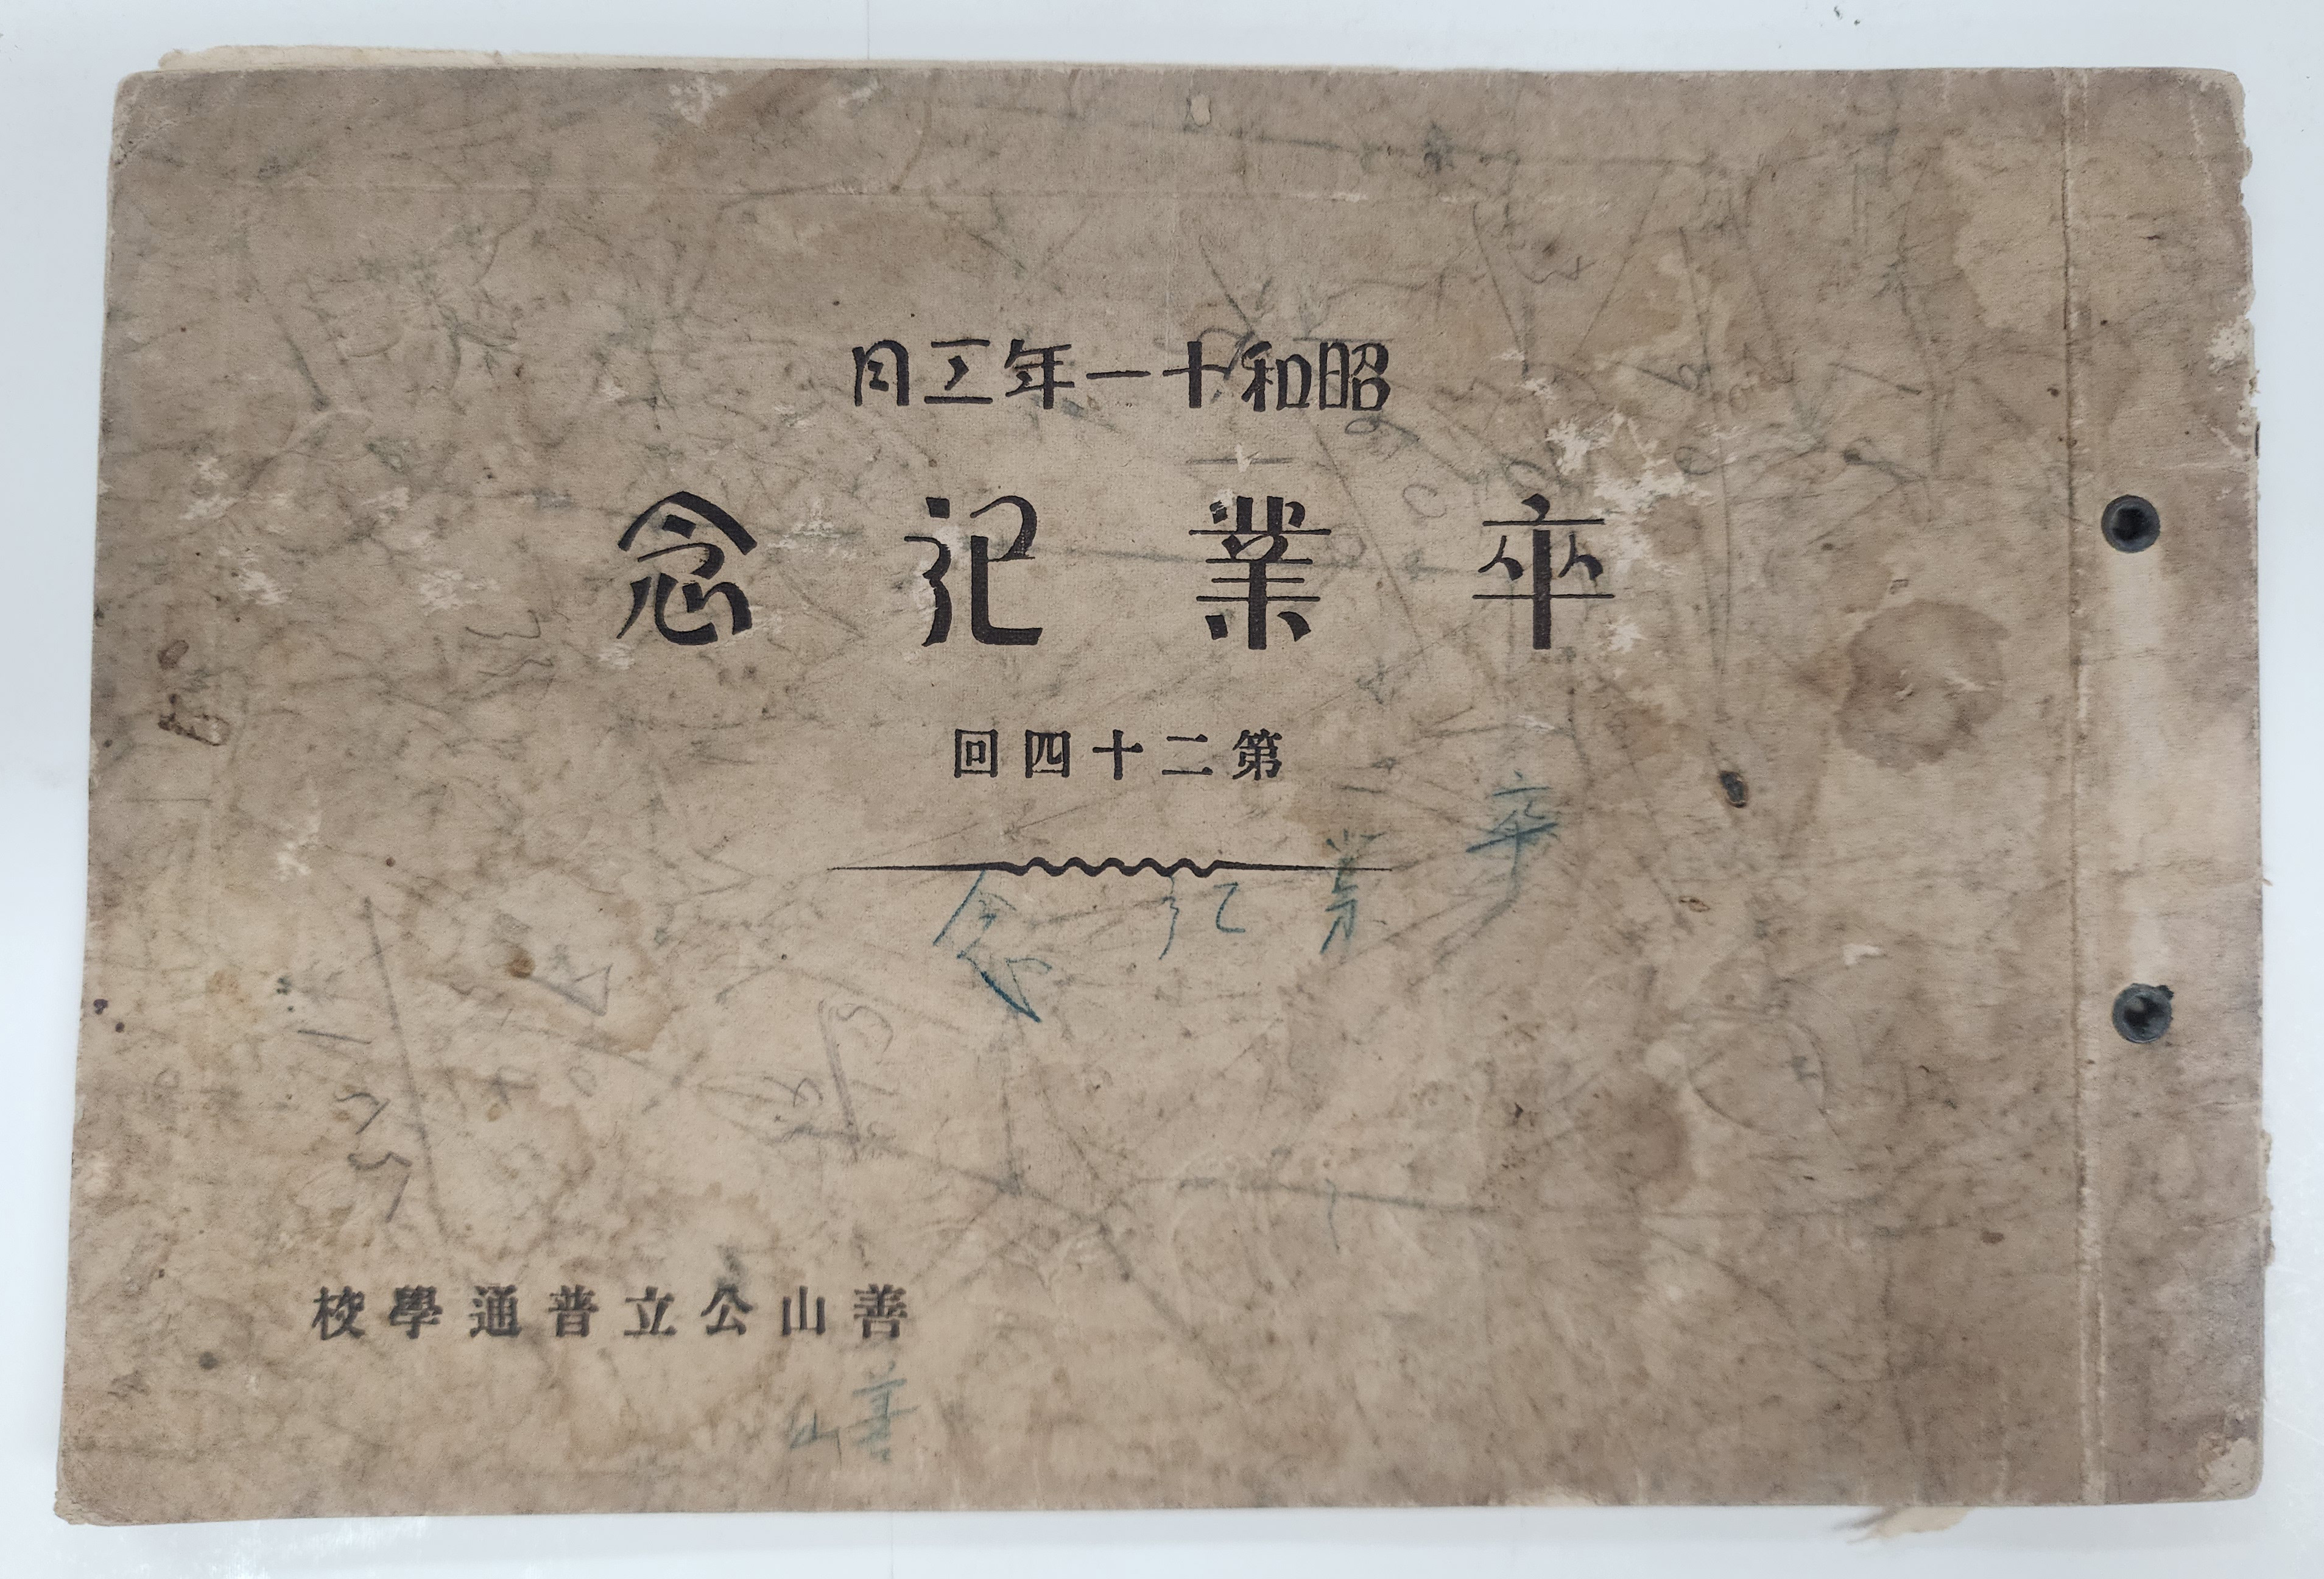 昭和十一年三月
卒業記念
第二十四回
卒業記念
善山公立普通學校
善山